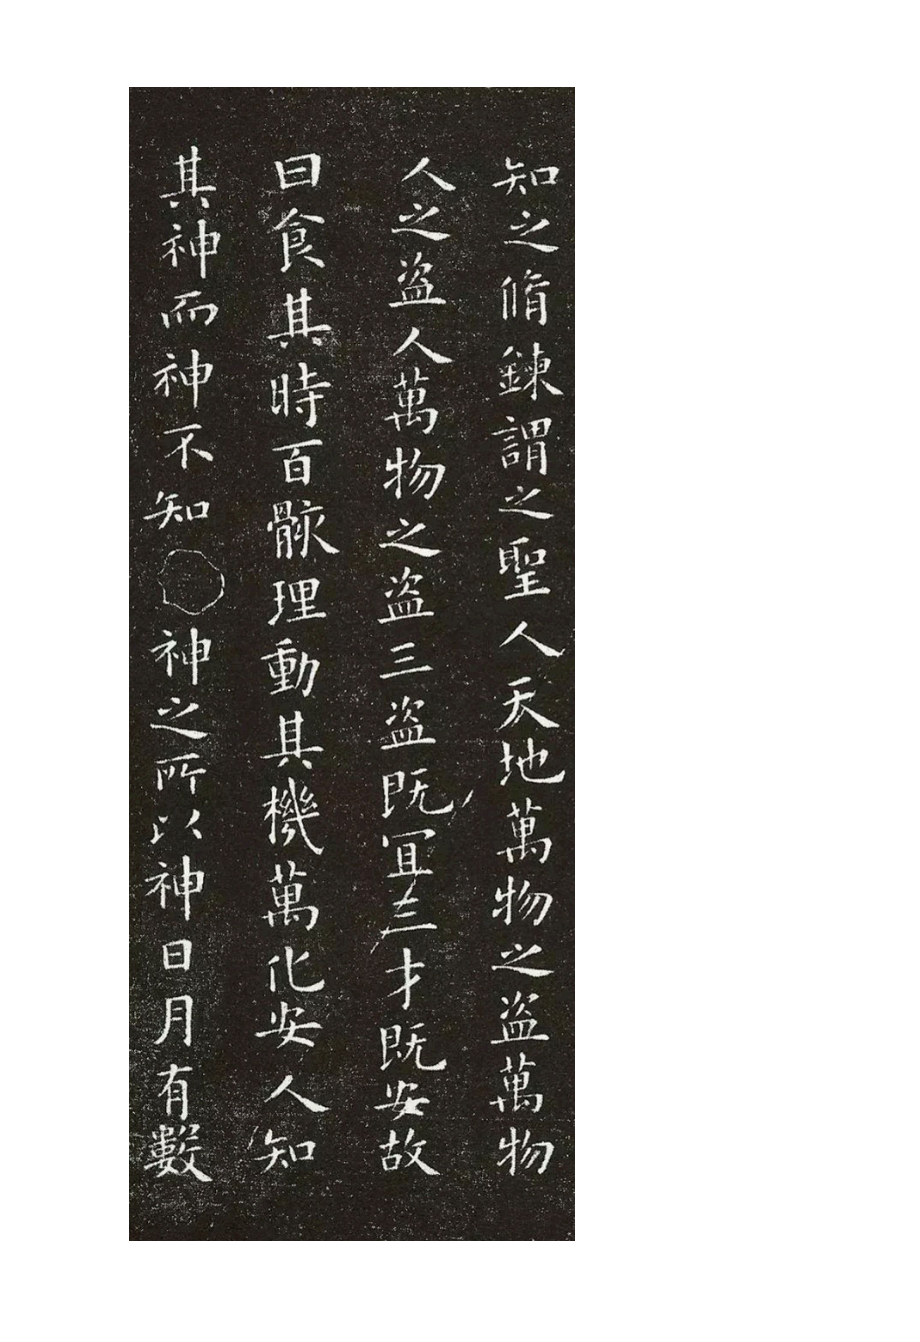 知之脩鍊謂之聖人天地萬物之盜萬物
人之盜人萬物之盜三盜既冝三才既安故
曰食其時百骸理動其機萬化安人知
其神而神不知〇神之所以神日月有數